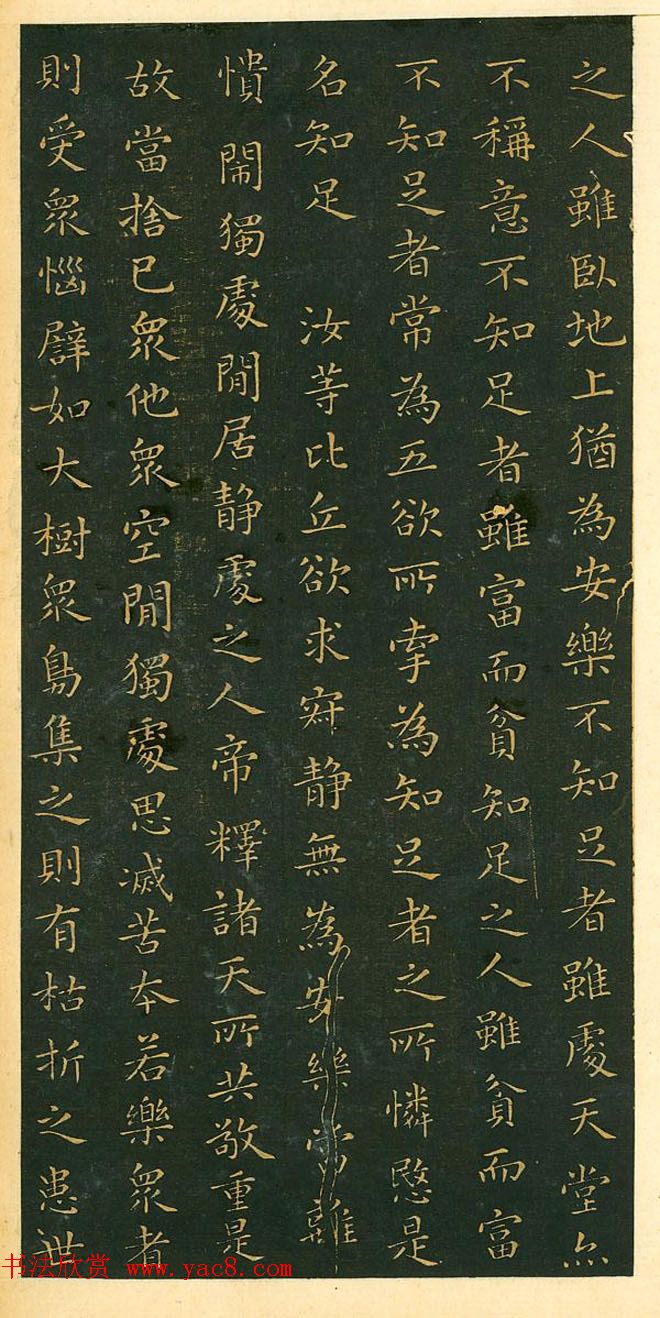 之人雖臥地上猶為安樂不知足者雖處天堂亦
不稱意不知足者雖富而貧知足之人雖貧而富
不知足者常為五欲所牽為知足者之所憐愍是
名知足 汝等比丘欲求寂靜無為安樂當離
憒閙獨處閒居靜處之人帝釋諸天所共敬重是
故當捨己衆他衆空閒獨處思滅苦本若樂衆者
則受衆惱譬如大樹衆鳥集之則有枯折之患世
书法欣赏 www.yac8.com